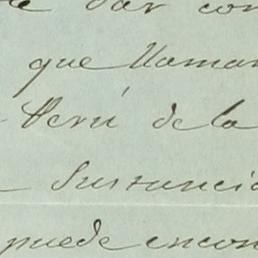 dar con
que llaman
Perú de la
puede encon